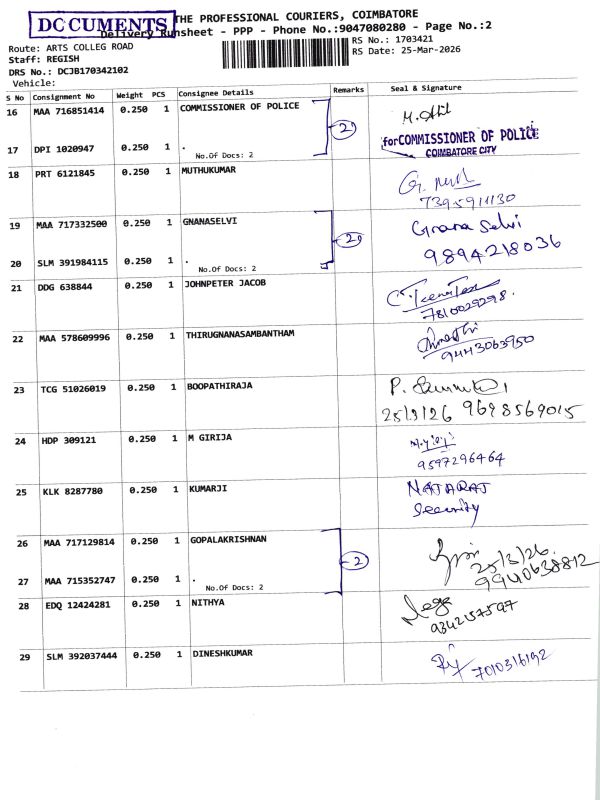 DOCUMENTS
THE PROFESSIONAL COURIERS, COIMBATORE
Delivery Runsheet - PPP - Phone No.:9047080280 - Page No.:2
Route: ARTS COLLEG ROAD
RS No.: 1703421
Staff: REGISH
RS Date: 25-Mar-2026
DRS No.: DCJB170342102
Vehicle:
S No Consignment No Weight PCS Consignee Details Remarks Seal & Signature
16 MAA 716851414 0.250 1 COMMISSIONER OF POLICE
2
for COMMISSIONER OF POLICE
COIMBATORE CITY
17 DPI 1020947 0.250 1 .
No.Of Docs: 2
18 PRT 6121845 0.250 1 MUTHUKUMAR
7395911130
19 MAA 717332500 0.250 1 GNANASELVI
2
Gnana Selvi
9894218036
20 SLM 391984115 0.250 1 .
No.Of Docs: 2
21 DDG 638844 0.250 1 JOHNPETER JACOB
7810029298.
22 MAA 578609996 0.250 1 THIRUGNANASAMBANTHAM
9443063950
23 TCG 51026019 0.250 1 BOOPATHIRAJA
25/3/26 9698569015
24 HDP 309121 0.250 1 M GIRIJA
9597296464
25 KLK 8287780 0.250 1 KUMARJI
NATARAJ
Security
26 MAA 717129814 0.250 1 GOPALAKRISHNAN
2
25/3/26.
9940638812
27 MAA 715352747 0.250 1 .
No.Of Docs: 2
28 EDQ 12424281 0.250 1 NITHYA
9342157597
29 SLM 392037444 0.250 1 DINESHKUMAR
7010316192